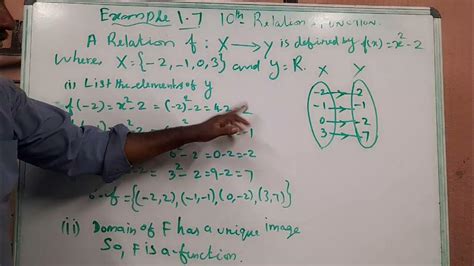 Example 1.7 10th Relation & FUNCTION.
A Relation f : X → Y is defined by f(x) = x² - 2
where, X = {-2, -1, 0, 3} and Y = R.
(i) List the elements of y
f(-2) = x² - 2 = (-2)² - 2 = 4 - 2 = 2
= -1
0 - 2 = 0 - 2 = -2
3² - 2 = 9 - 2 = 7
f = {(-2, 2), (-1, -1), (0, -2), (3, 7)}
(ii) Domain of F has a unique image
So, F is a function.
X Y
-2 → 2
-1 → -1
0 → -2
3 → 7